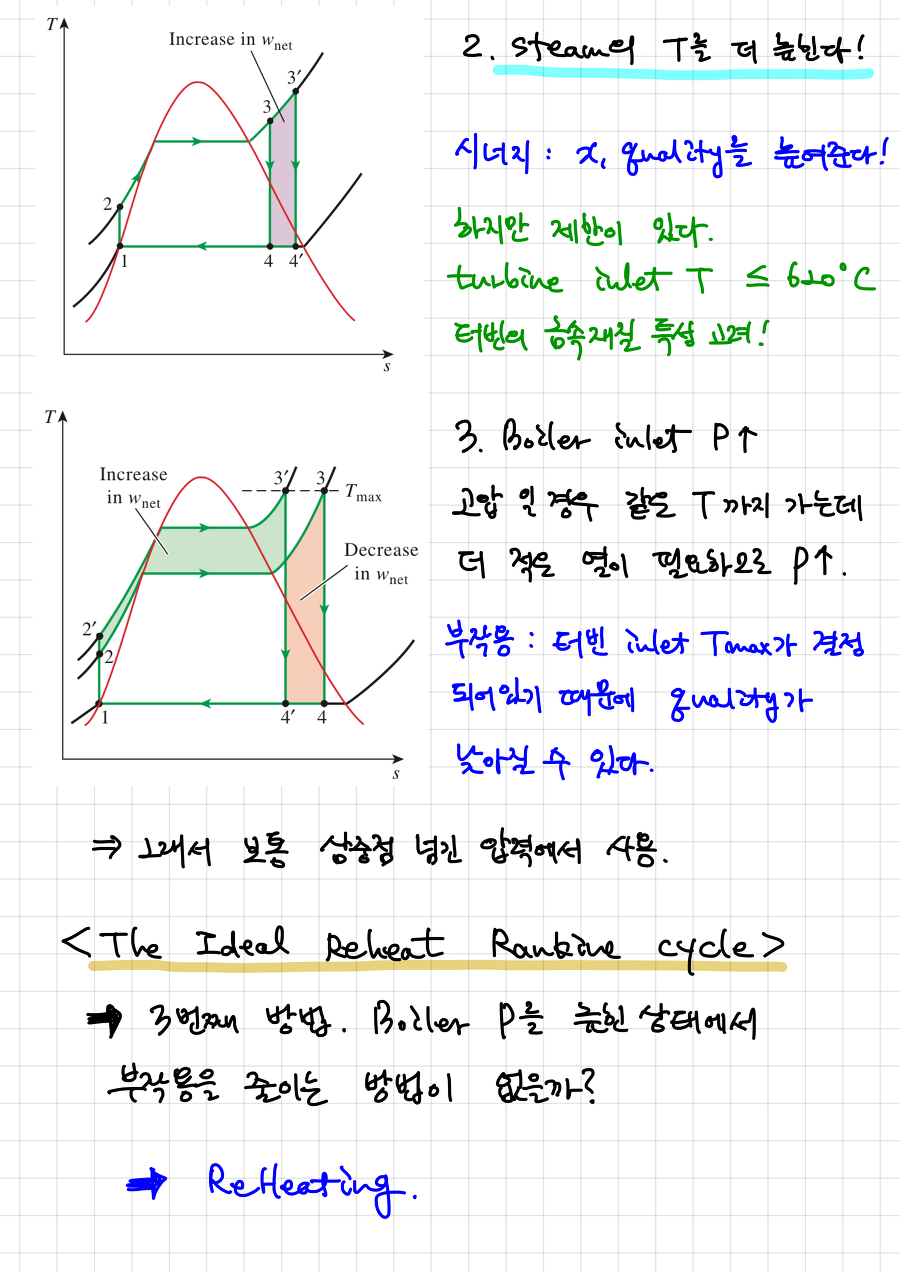 T
Increase in wnet
3′
3
2
1
4
4′
s
2. Steam의 T를 더 높힌다!
시너지 : x, quality를 높여준다!
하지만 제한이 있다.
turbine inlet T ≤ 620°C
터빈의 금속재질 특성 고려!
T
Increase
in wnet
3′
3
Tmax
Decrease
in wnet
2′
2
1
4′
4
s
3. Boiler inlet P↑
고압 일 경우 같은 T까지 가는데
더 적은 열이 필요하므로 P↑.
부작용 : 터빈 inlet Tmax가 결정
되어있기 때문에 quality가
낮아질 수 있다.
⇒ 그래서 보통 삼중점 넘긴 압력에서 사용.
<The Ideal Reheat Rankine cycle>
➡ 3번째 방법. Boiler P를 높힌 상태에서
부작용을 줄이는 방법이 없을까?
➡ ReHeating.